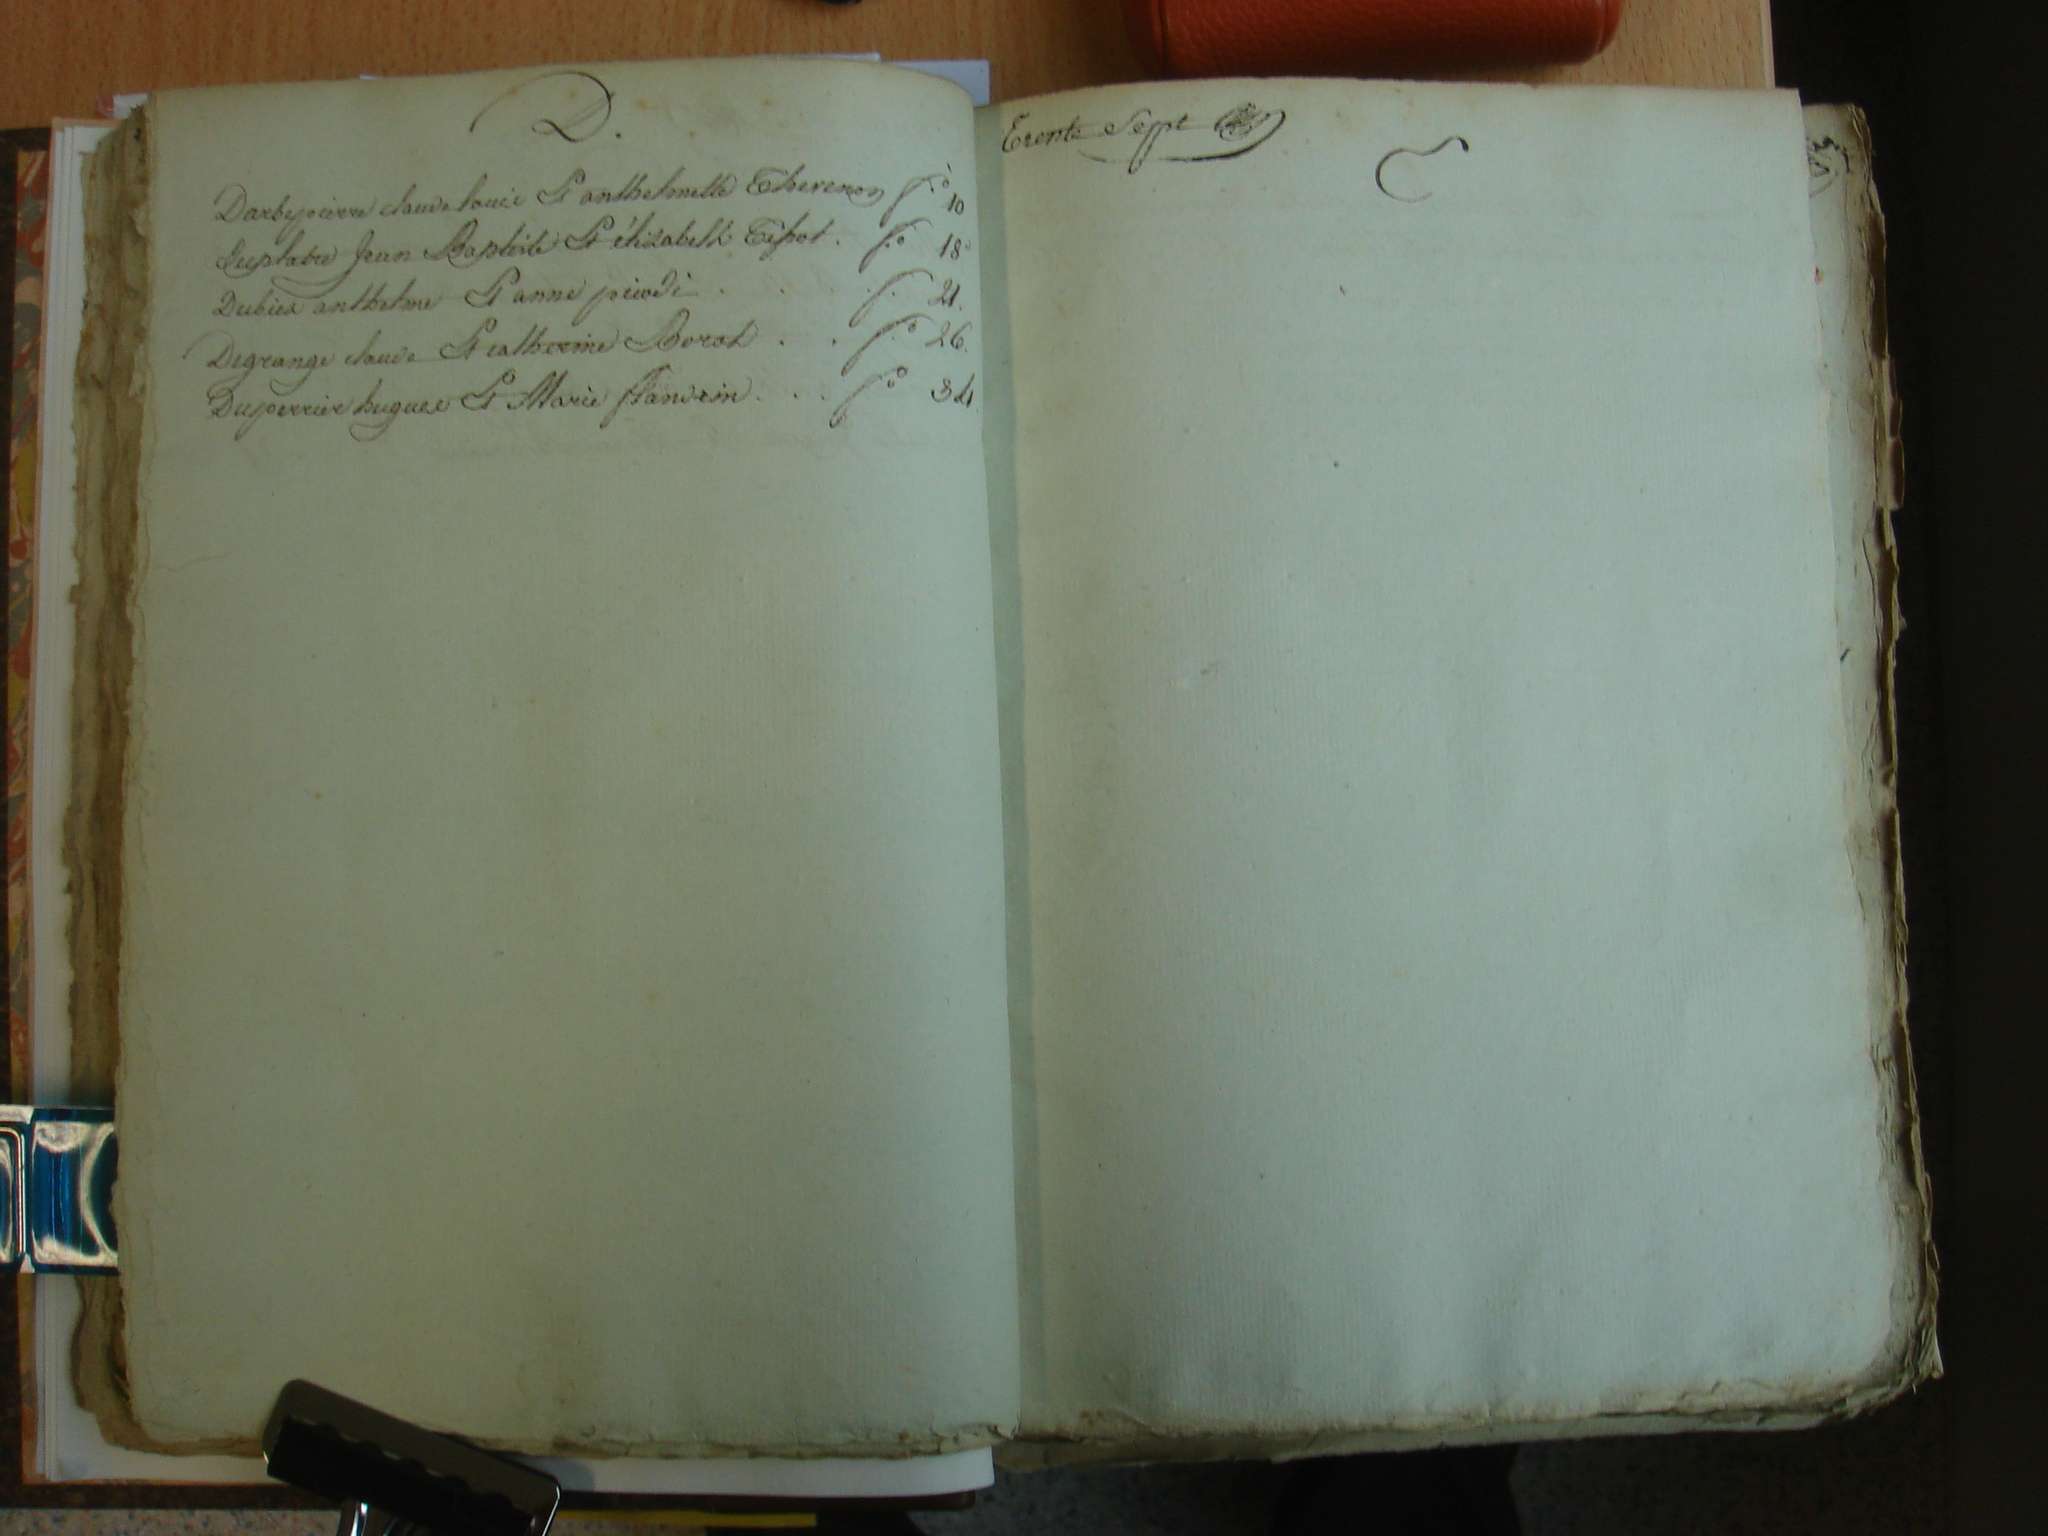 D.
Darbepierre claude louis Et anthelmette Thevenon fo 10
Duplatre Jean Baptiste Et élizabelh Tissot. fo 18
Dubiez anthelme Et anne pivodi . . . f. 21.
Degrange claude Et catherine Borot . . fo 26.
Duperrier hugues Et Marie flandrin . . . fo 34
Trente Sept